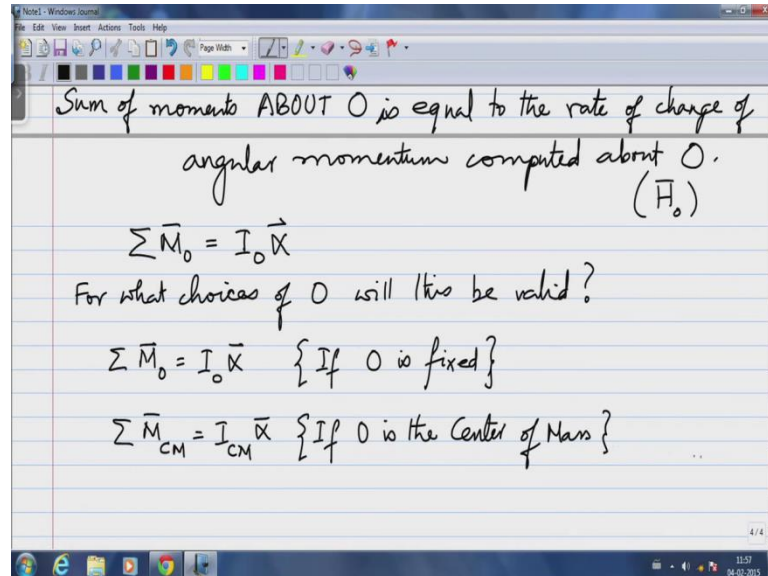 Note1 - Windows Journal
File Edit View Insert Actions Tools Help
Page Width
Sum of moments ABOUT O is equal to the rate of change of
angular momentum computed about O.
(H̅₀)
Σ M̅₀ = I₀ α⃗
For what choices of O will this be valid?
Σ M̅₀ = I₀ α̅ {If O is fixed}
Σ M̅_CM = I_CM α̅ {If O is the Center of Mass}
4/4
11:57
04-02-2015